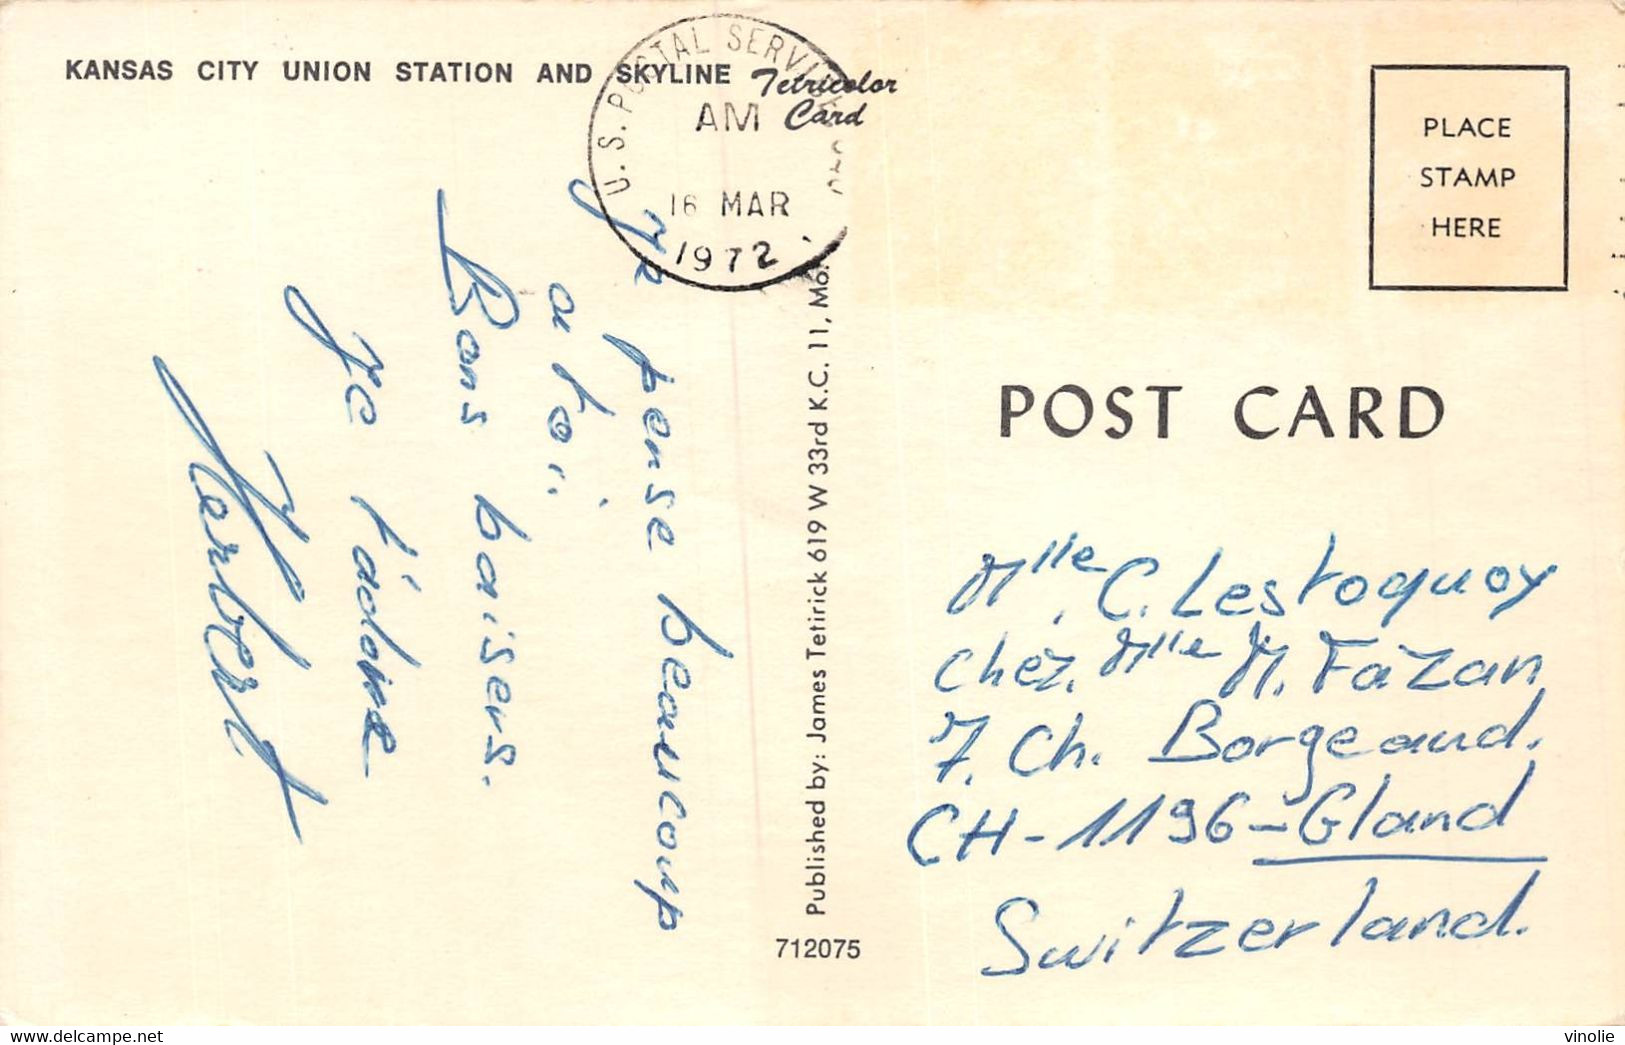 KANSAS CITY UNION STATION AND SKYLINE
Tetricolor
Card
U.S. POSTAL SERVICE
AM
16 MAR
1972
PLACE
STAMP
HERE
Je pense beaucoup
a toi.
Bons baisers.
Je t'adore
Herbert
Published by: James Tetirick 619 W 33rd K.C. 11, Mo.
712075
POST CARD
Mlle C. Lestoquoy
chez. Mlle M. Fazan
7. Ch. Borgeaud.
CH-1196-Gland
Switzerland.
delcampe.net
vinolie